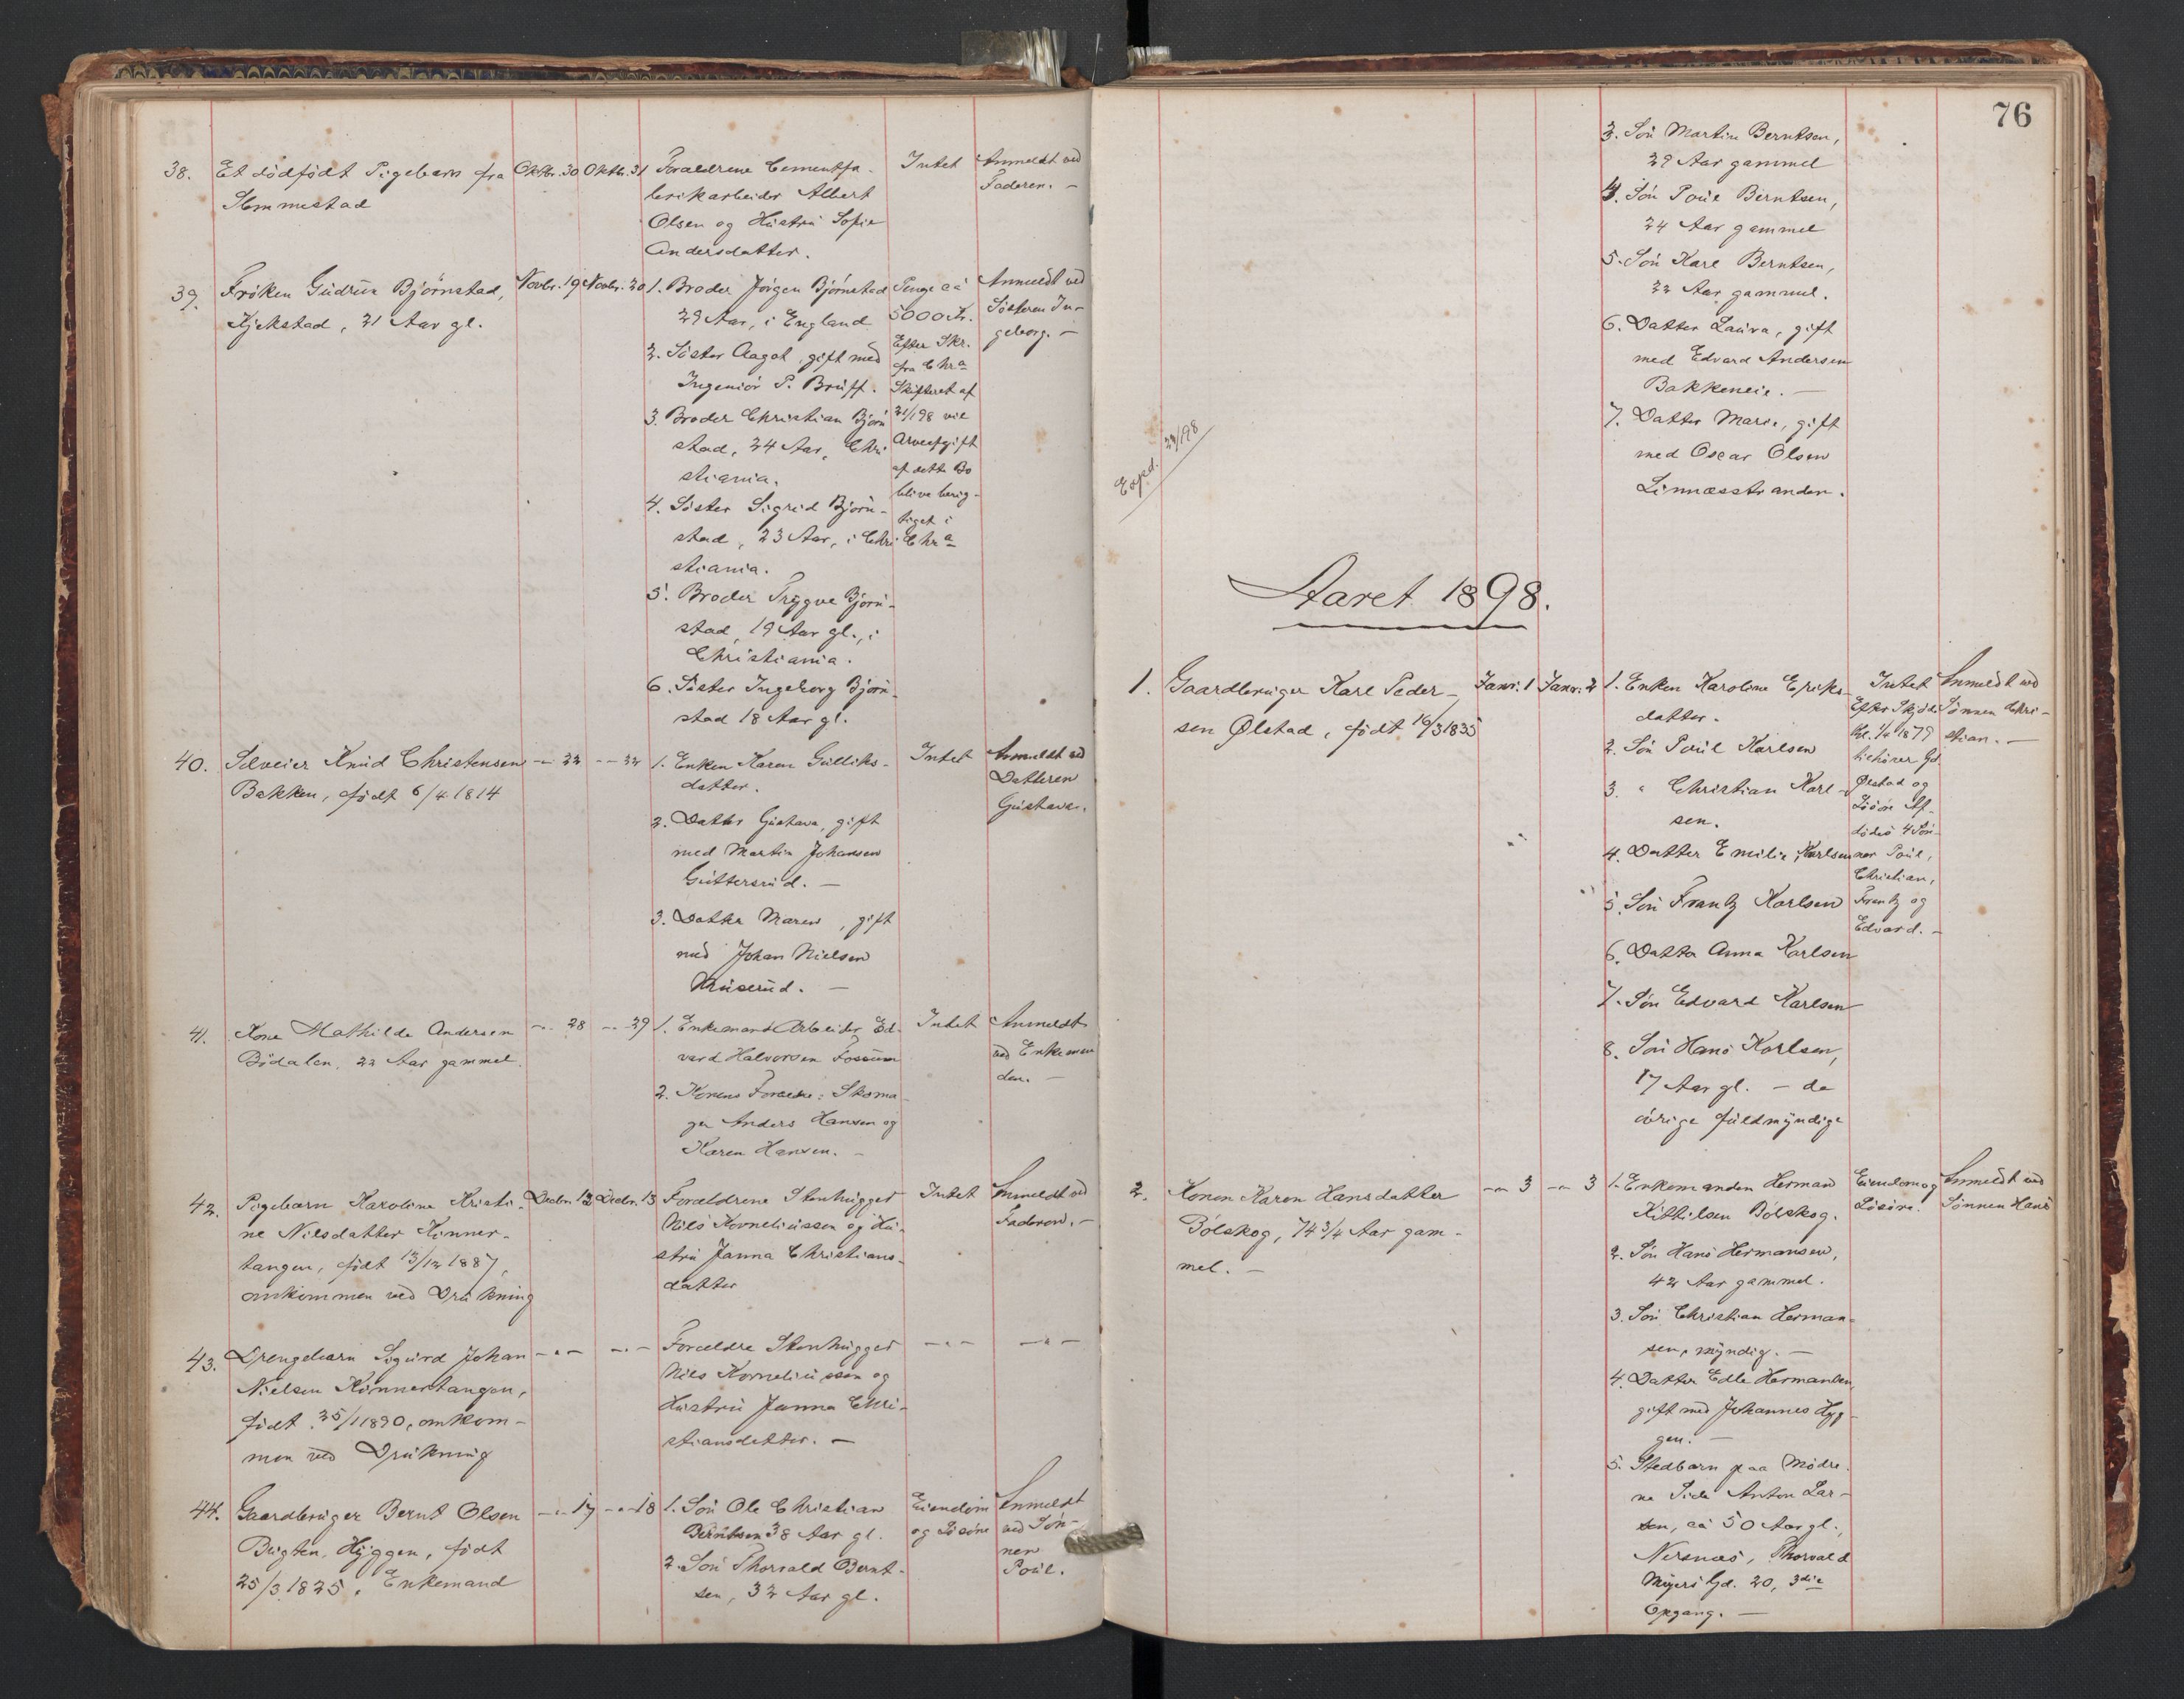 38.
Et dödfödt Pigebarn fra
Slemmestad
Oktbr. 30
Oktbr. 31
Forældrene Cementfa-
brikarbeider Albert
Olsen og Hustru Sofie
Andersdatter.
Intet
Anmeldt ved
Faderen. -
39.
Fröken Gudrun Björnstad,
Kjekstad, 21 Aar gl.
Novbr. 19
Novbr. 20
1. Broder Jörgen Björnstad
29 Aar, i England
2. Söster Aagot, gift med
Ingeniör P. Bruff.
3. Broder Christian Björn
stad, 24 Aar, Chri
stiania.
4. Söster Sigrid Björn-
stad, 23 Aar, i Chri
stiania.
5. Broder Trygve Björn-
stad, 19 Aar gl., i
Christiania.
6. Söster Ingeborg Björn-
stad 18 Aar gl.
Penge ca
5000 Kr.
Efter Skr.
fra Chra
Skifteret af
21/1 98 vil
Arveafgift
af dette Bo
blive berig-
tiget i
Chra
Anmeldt ved
Sösteren In-
geborg. -
40.
Selveier Knud Christensen
Bakken, födt 6/4 1814
-"- 22
-"- 22
1. Enken Karen Gulliks-
datter.
2. Datter Gustava, gift
med Martin Johansen
Guttersrud. -
3. Datter Maren, gift
med Johan Nielsen
Kruserud. -
Intet
Anmeldt ved
Datteren
Gustava.
41.
Kone Mathilde Andersen
Bödalen, 22 Aar gammel.
-"- 28
-"- 29
1. Enkemand Arbeider Ed-
vard Halvorsen Fossum
2. Konens Forældre: Skoma-
ger Anders Hansen og
Karen Hansen. -
Intet
Anmeldt
ved Enkeman
den. -
42.
Pigebarn Karoline Kristi-
ne Nilsdatter Kinner-
tangen, födt 13/12 1887,
omkommen ved Drukning
Decbr. 12
Decbr. 13
Forældrene Stenhugger
Nils Korneliussen og Hu-
stru Janna Christians-
datter
Intet
Anmeldt ved
Faderen. -
43.
Drengebarn Sigurd Johan
Nielsen Kinnertangen,
födt 25/1 1890, omkom-
men ved Drukning
-"-
-"-
Forældre Stenhugger
Nils Korneliussen og
Hustru Janna Chri-
stiansdatter. -
-"-
-"-
44.
Gaardbruger Bernt Olsen
Bugten, Hyggen, födt
25/3 1825, Enkemand
-"- 17
-"- 18
1. Sön Ole Christian
Berntsen 38 Aar gl.
2. Sön Thorvald Bernt-
sen, 32 Aar gl.
Eiendom
og Lösöre
Anmeldt
ved Sön-
nen
Poul.
76
3. Sön Martin Berntsen,
29 Aar gammel
4. Sön Poul Berntsen,
24 Aar gammel
5. Sön Karl Berntsen,
22 Aar gammel.
6. Datter Laura, gift
med Edvard Andersen
Bakkeneie. -
7. Datter Marie, gift
med Oscar Olsen
Linnæsstranden.
Exped. 29/1 98
Aaret 1898.
1.
Gaardbruger Karl Peder-
sen Ølstad, födt 16/3 1835
Janr. 1
Janr. 2
1. Enken Karoline Eriks-
datter.
2. Sön Poul Karlsen
3. " Christian Karl-
sen.
4. Datter Emilie Karlsen
5. Sön Frantz Karlsen
6. Datter Anna Karlsen
7. Sön Edvard Karlsen
8. Sön Hans Karlsen,
17 Aar gl. - de
övrige fuldmyndige
Intet
Efter Skjöde
tilhörer Gd.
Ølstad og
Lösöre Af-
dödes 4 Sön-
ner Poul,
Christian,
Frantz og
Edvard. -
Anmeldt ved
Sönnen Chri-
stian. -
2.
Konen Karen Hansdatter
Bölskog, 74 3/4 Aar gam-
mel. -
-"- 3
-"- 3
1. Enkemanden Herman
Kittilsen Bölskog.
2. Sön Hans Hermansen,
42 Aar gammel.
3. Sön Christian Herman-
sen, myndig. -
4. Datter Edle Hermansen,
gift med Johannes Hyg-
gen. -
5. Stedbarn paa Mödre-
ne Side Anton Lar-
sen, ca 50 Aar gl.,
Nersnæs, Thorvald
Meyers Gd. 20, 3die
Opgang. -
Eiendom og
Lösöre.
Anmeldt ved
Sönnen Hans